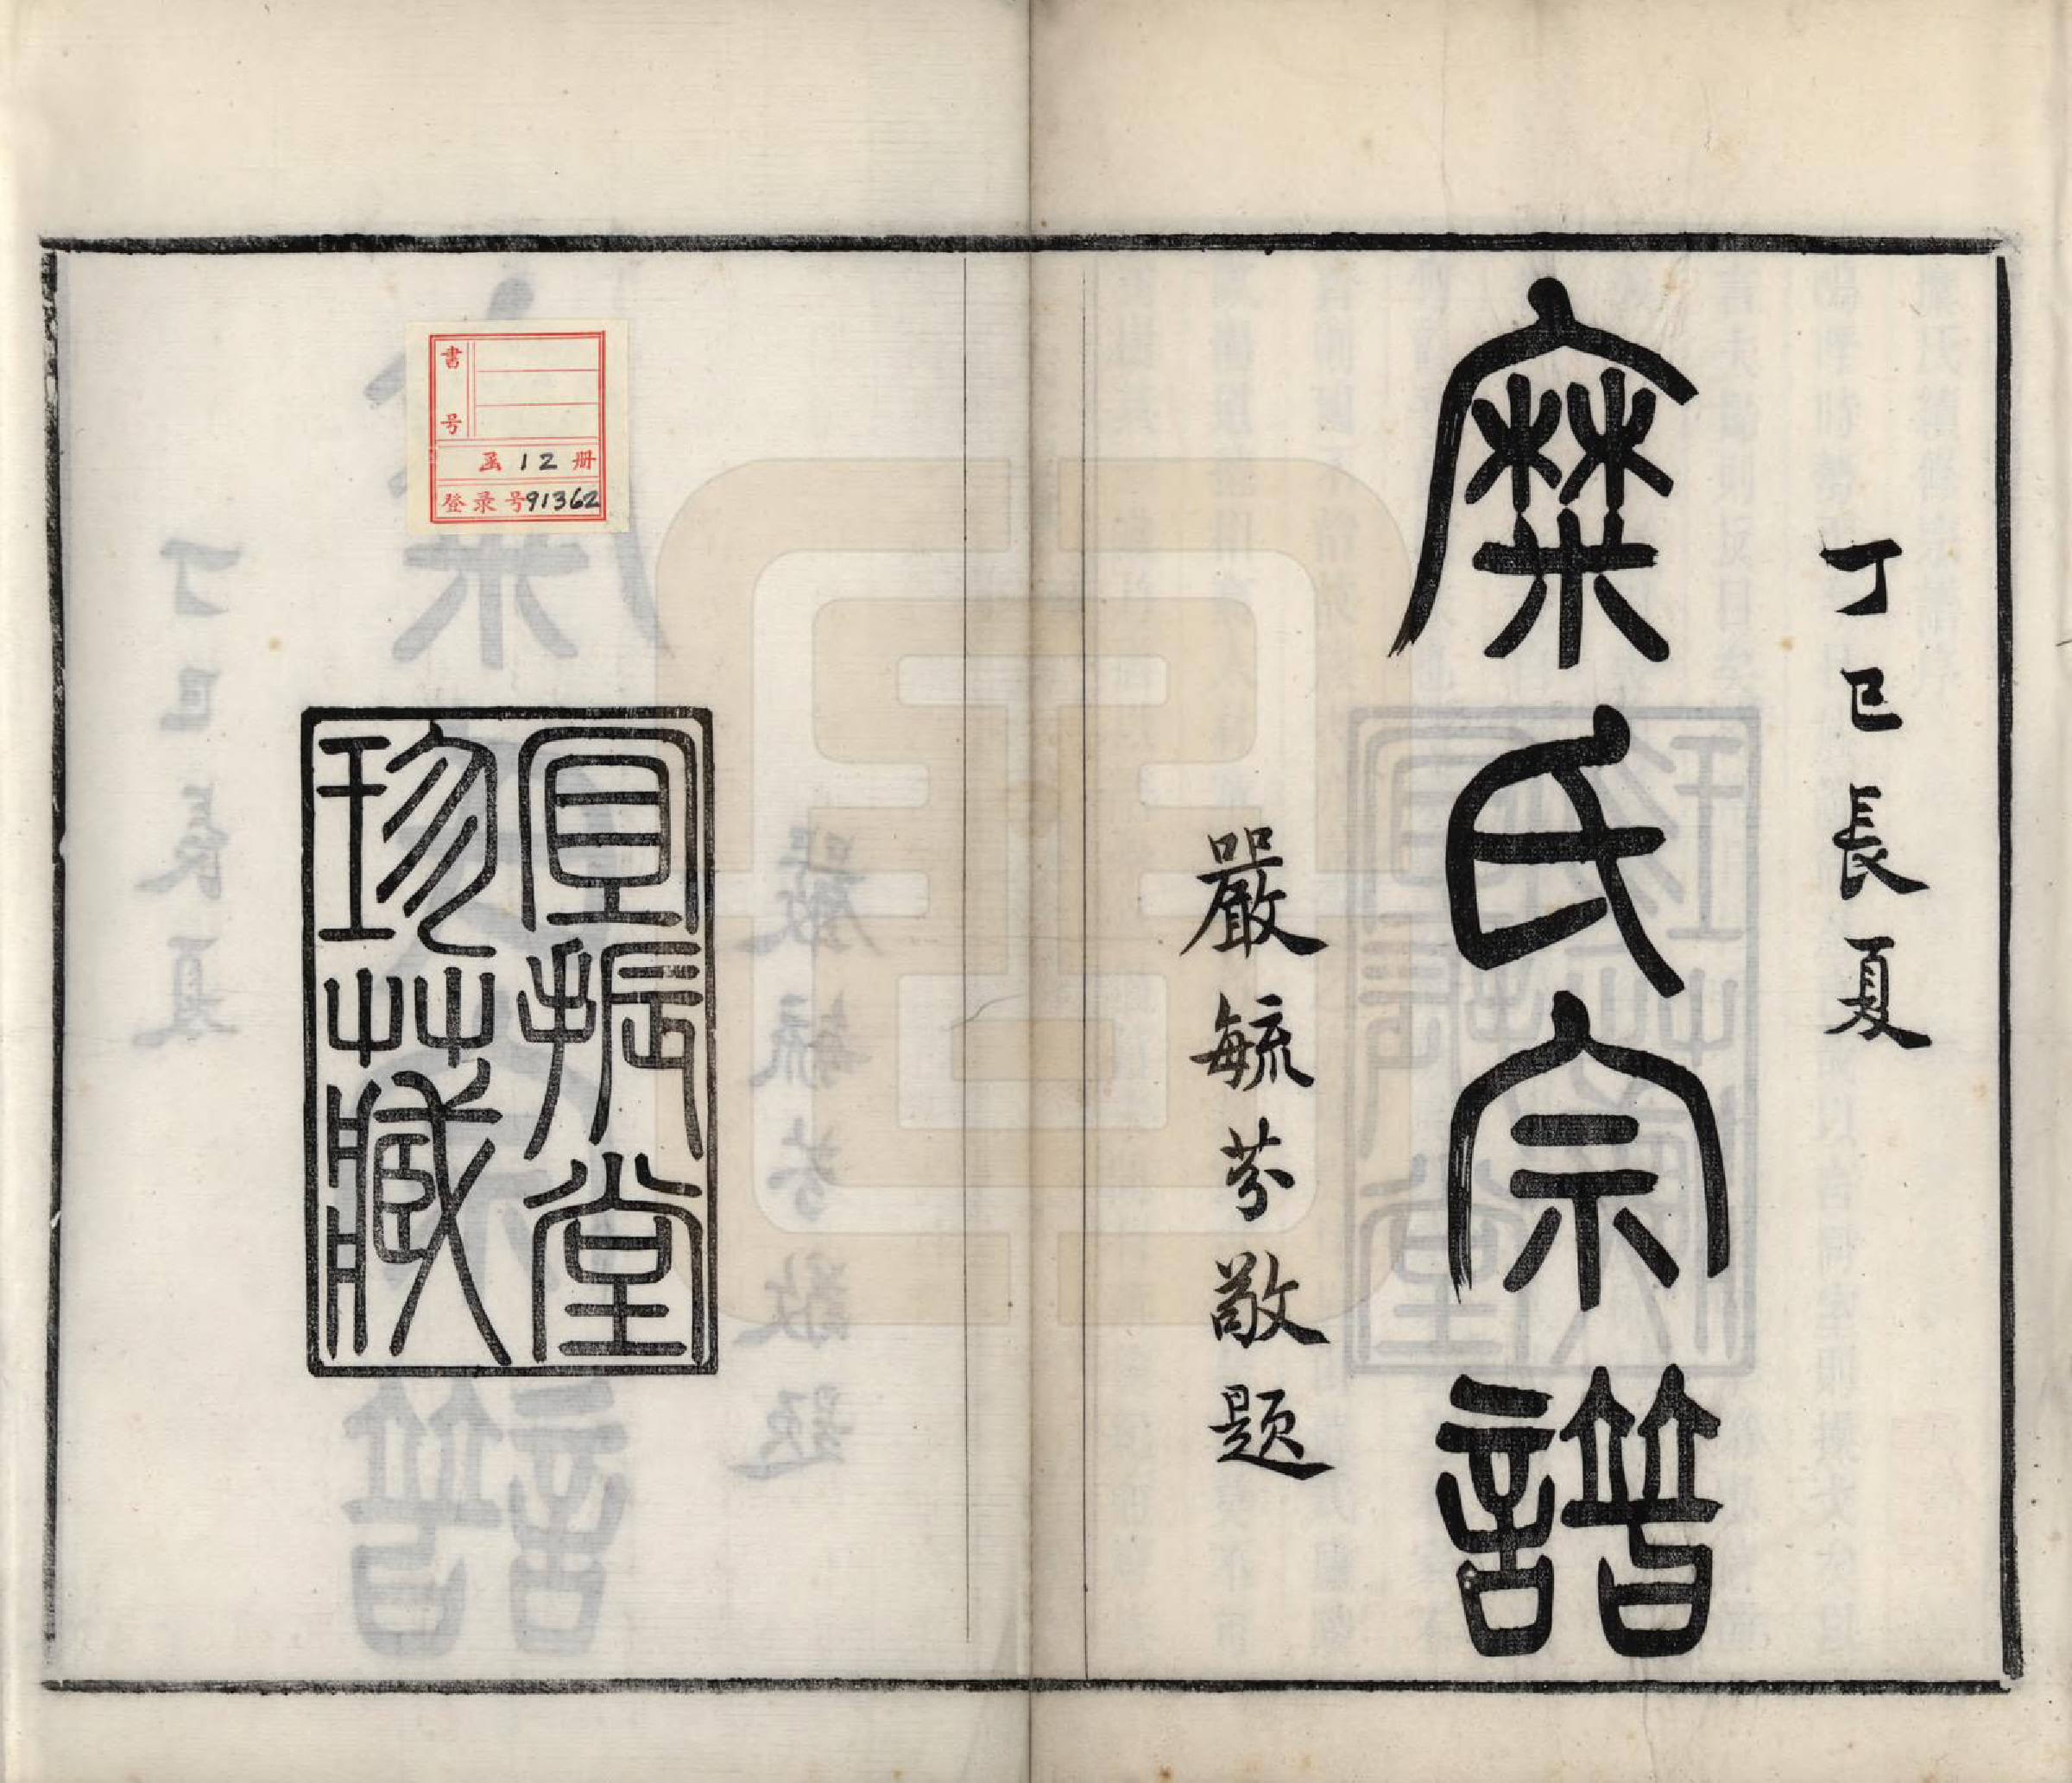 丁巳長夏
糜氏宗譜
嚴毓芬敬題
宜振堂
珍藏
書号
函 12 册
登录号91362